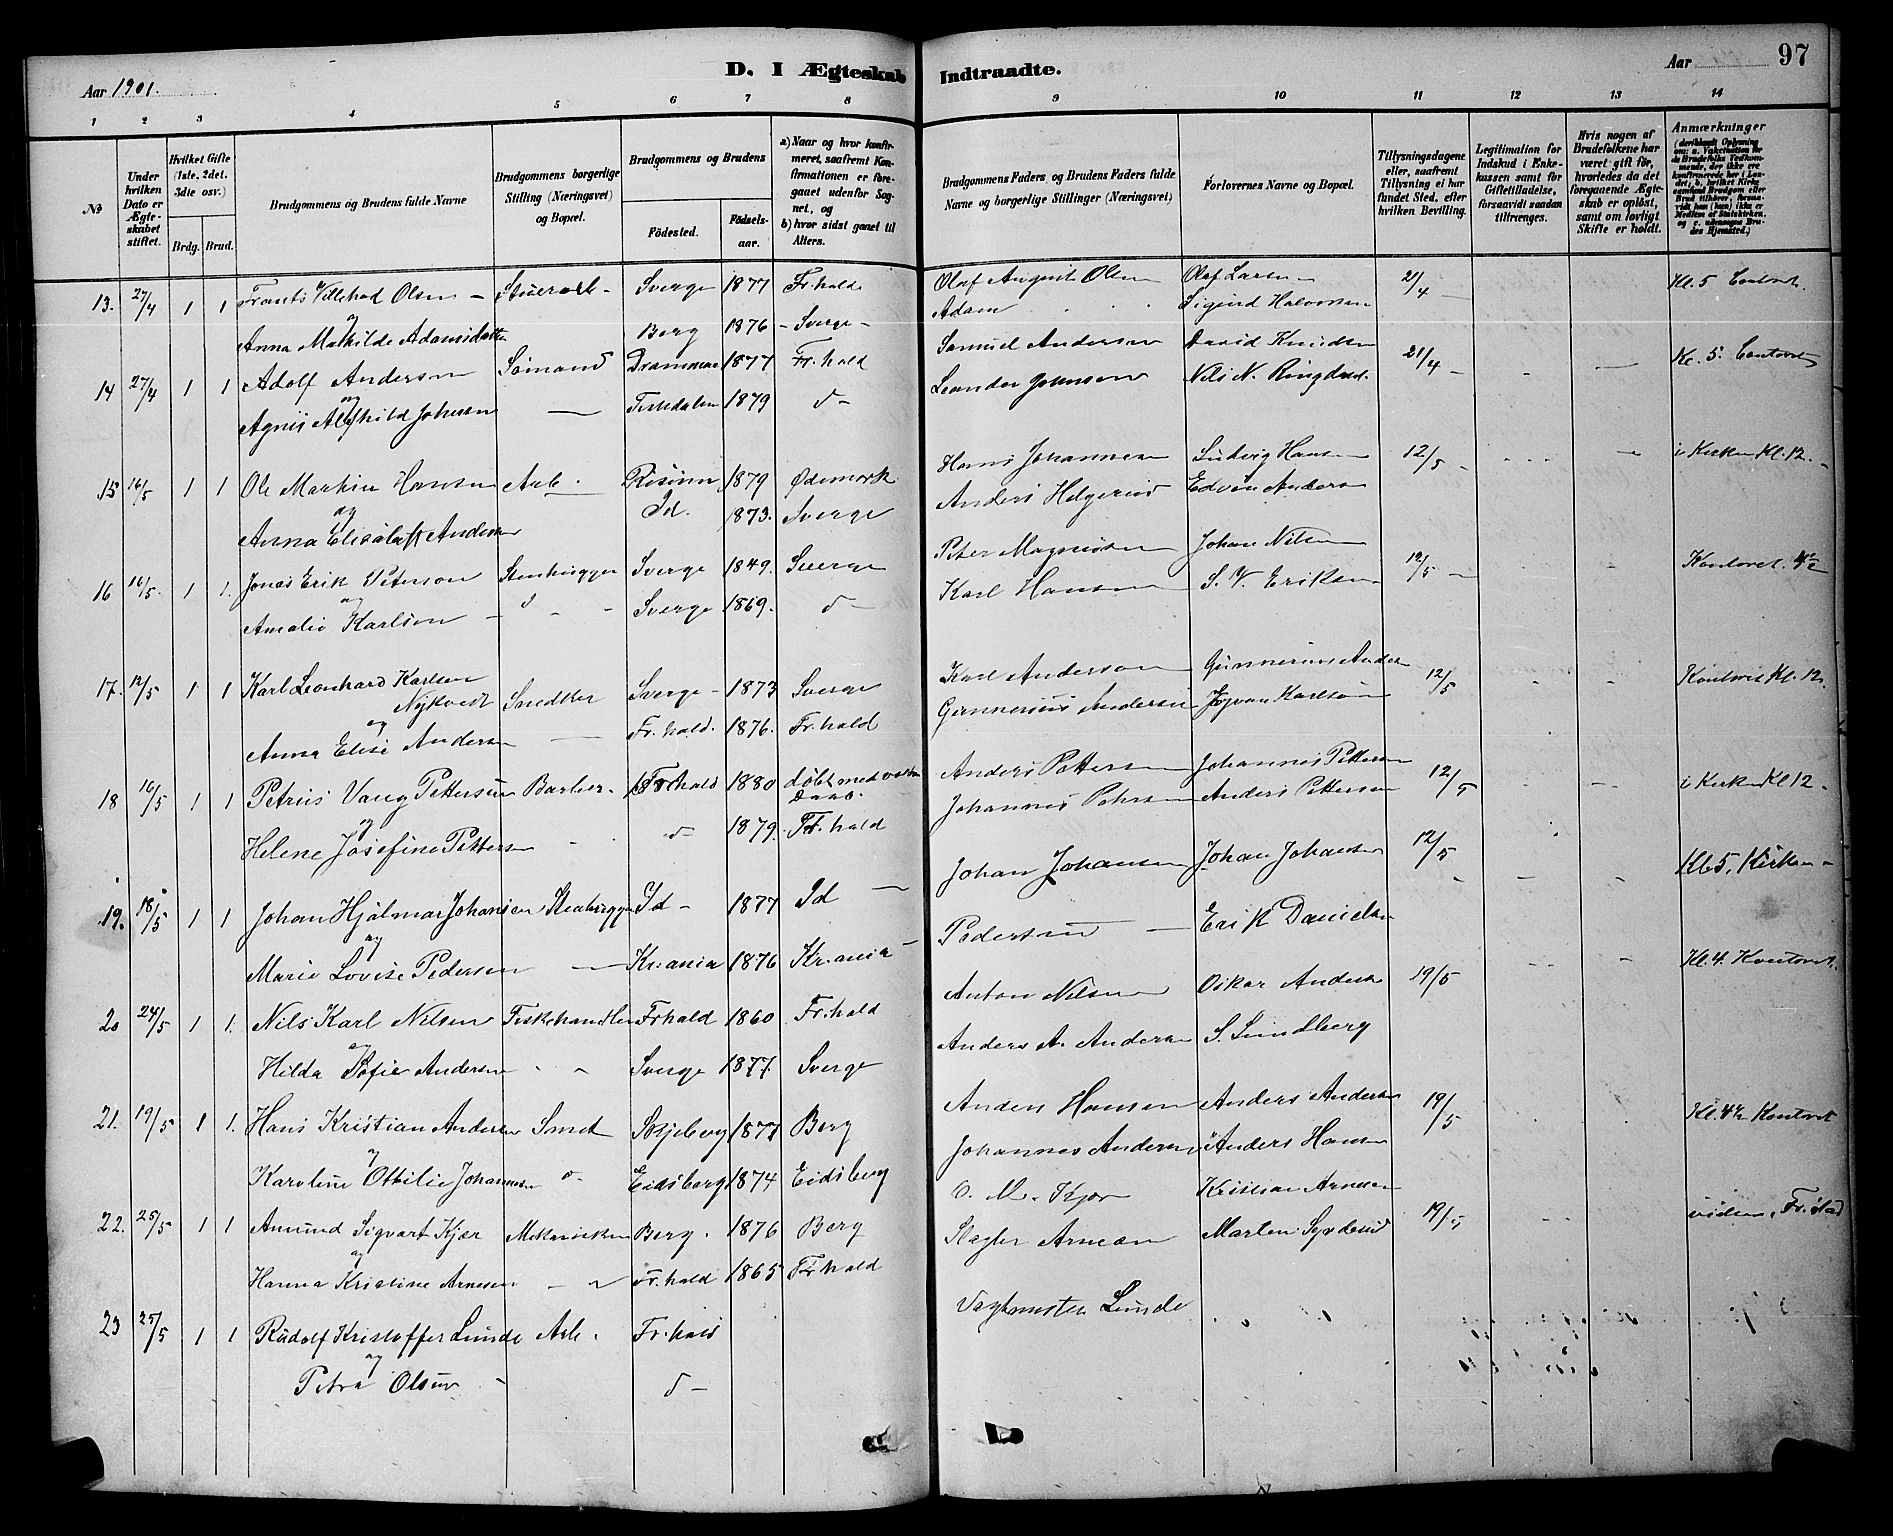 Aar 1901.
D. I Ægteskab Indtraadte.
Aar
97
1 2 3 4 5 6 7 8 9 10 11 12 13 14
No
Under hvilken Dato er Ægteskabet stiftet.
Hvilket Gifte (1ste, 2det, 3die osv.)
Brdg. Brud.
Brudgommens og Brudens fulde Navne
Brudgommens borgerlige Stilling (Næringsvei) og Bopæl.
Brudgommens og Brudens
Fødested. Fødselsaar.
a) Naar og hvor konfirmeret, saafremt Konfirmationen er foregaaet udenfor Sognet, og
b) hvor sidst gaaet til Alters.
Brudgommens Faders og Brudens Faders fulde Navne og borgerlige Stillinger (Næringsvei)
Forlovernes Navne og Bopæl.
Tillysningsdagene eller, saafremt Tillysning ei har fundet Sted, efter hvilken Bevilling.
Legitimation for Indskud i Enkekassen samt for Giftetilladelse, forsaavidt saadan tiltrænges.
Hvis nogen af Brudefolkene har været gift før, hvorledes da det foregaaende Ægteskab er opløst, samt om lovligt Skifte er holdt.
Anmærkninger
13. 27/4 1 1 Frants Olsen Sverge 1877 Fr.hald Olaf August Olsen Olaf Larsen 21/4 Kl. 5 Contoret.
og
Anna Mathilde Adamsdatter Berg 1876 Sverge Adam Sigurd Halvorsen
14 27/4 1 1 Adolf Andersen Sømand Drammen 1877 Fr.hald Samuel Andersen David Knudsen 21/4 Kl. 5. Contoret
og
Agnes Johnsen Tistedalen 1879 d Leander Johnsen Nils N. Ringdal.
15 16/5 1 1 Ole Martin Hansen Arb. 1879 Ødemark Hans Johannesen Ludvig Hansen 12/5 i Kirken Kl. 12.
og
Anna Elisabeth Andersen Id. 1873. Sverge Anders Helgerud Edvin Andersen
16 16/5. 1 1. Jonas Erik Peterson Stenhugger Sverge 1849. Sverge Peter Magnusen Johan Nilsen 12/5 Kontoret. 4½
og
Amalie Karlson d Sverge 1869. d Karl Hansen S. V. Eriksen
17. 12/5 1 1 Karl Leonhard Karlsen
Nykvedt Sverge 1873 Sverge Karl Anderson Gunnerius Andersen 12/5 Kontoret Kl. 12.
og
Anna Elise Andersen Fr.hald. 1876. Fr.hald Gunnerius Andersen Karlson
18 16/5 1 1 Petrus Vang Pettersen Barber. Fr.hald 1880 døbt med Anders Pettersen Johannes Pettersen 12/5 i Kirken Kl 12.
og
Helene Josefine Pettersen d 1879. Fr.hald Johannes Anders Pettersen
19. 18/5 1 1 Johan Hjalmar Johansen Stenhugger Id 1877 Id Johan Johansen Johan Johansen 12/5 Kl 5, Kirken
og
Marie Lovise Pedersen Kr.ania 1876 Kr.ania Pedersen Erik Danielsen
20 24/5 1 1. Nils Karl Nilsen Fiskehandler Fr.hald 1860 Fr.hald Anton Nilsen Oskar Andersen 19/5 Kl. 4. Kontoret.
og
Hilda Sofie Andersen Sverge 1877. Sverge Anders A. Andersen S. Sundberg
21. 19/5 1 1. Hans Kristian Andersen Smed Skjeberg 1877 Berg Anders Hansen Anders Andersen 19/5 Kl. 4½ Kontoret
og
Karoline Ottilie Johannesen d Eidsberg 1874 Eidsberg Johannes Andersen Anders Hansen
22. 25/5 1 1 Amund Sigvart Kjær Mekaniker Berg. 1876 Berg O. M. Kjær Kristian Arnesen 19/5 viden, Fr.stad
og
Hanna Kristine Arnesen Fr.hald 1865 Fr.hald Slagter Arnesen Marten
23 25/5 1 1 Rudolf Kristoffer Lunde Arb. Fr.hald Vagtmester Lunde
og
Petra Olsen d